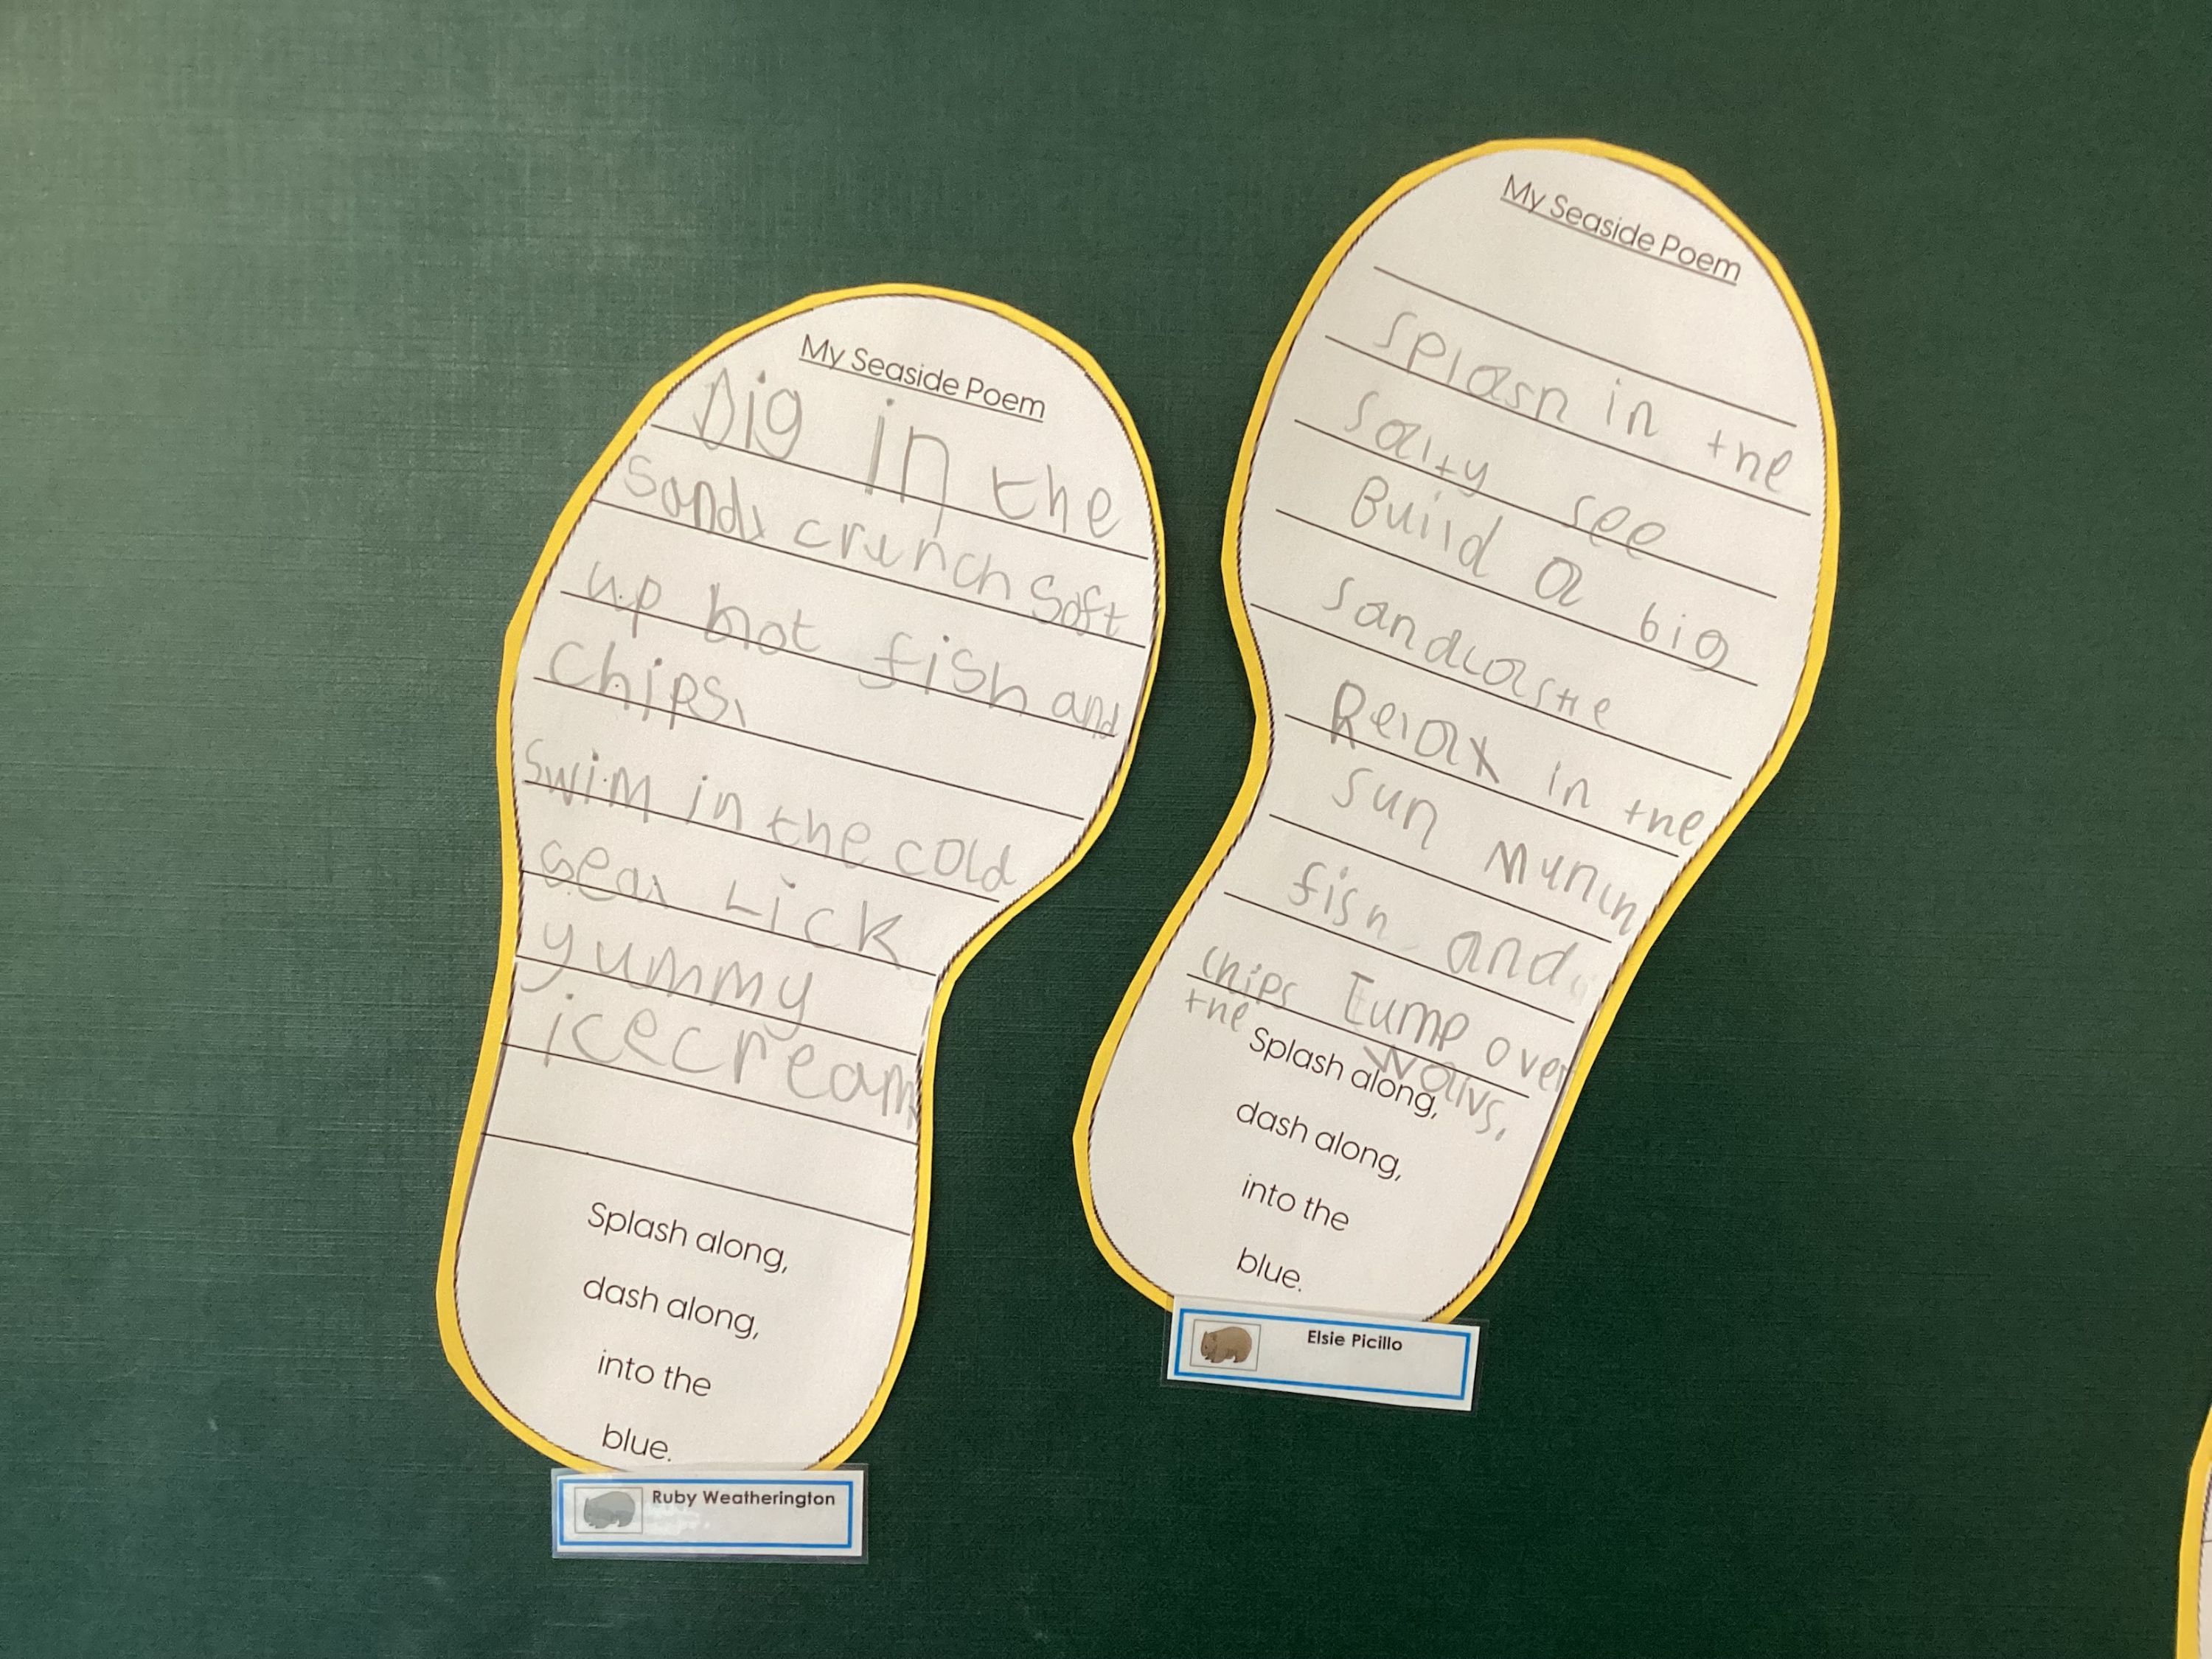 My Seaside Poem
Dig in the
sand, crunch Soft
up hot fish and
chips,
Swim in the cold
sea, Lick
yummy
icecream
Splash along,
dash along,
into the
blue.
Ruby Weatherington
My Seaside Poem
splash in the
salty see
Build a big
sandcastle
Relax in the
sun Munch
fish and
chips Jump over
the waivs,
Splash along,
dash along,
into the
blue.
Elsie Picillo